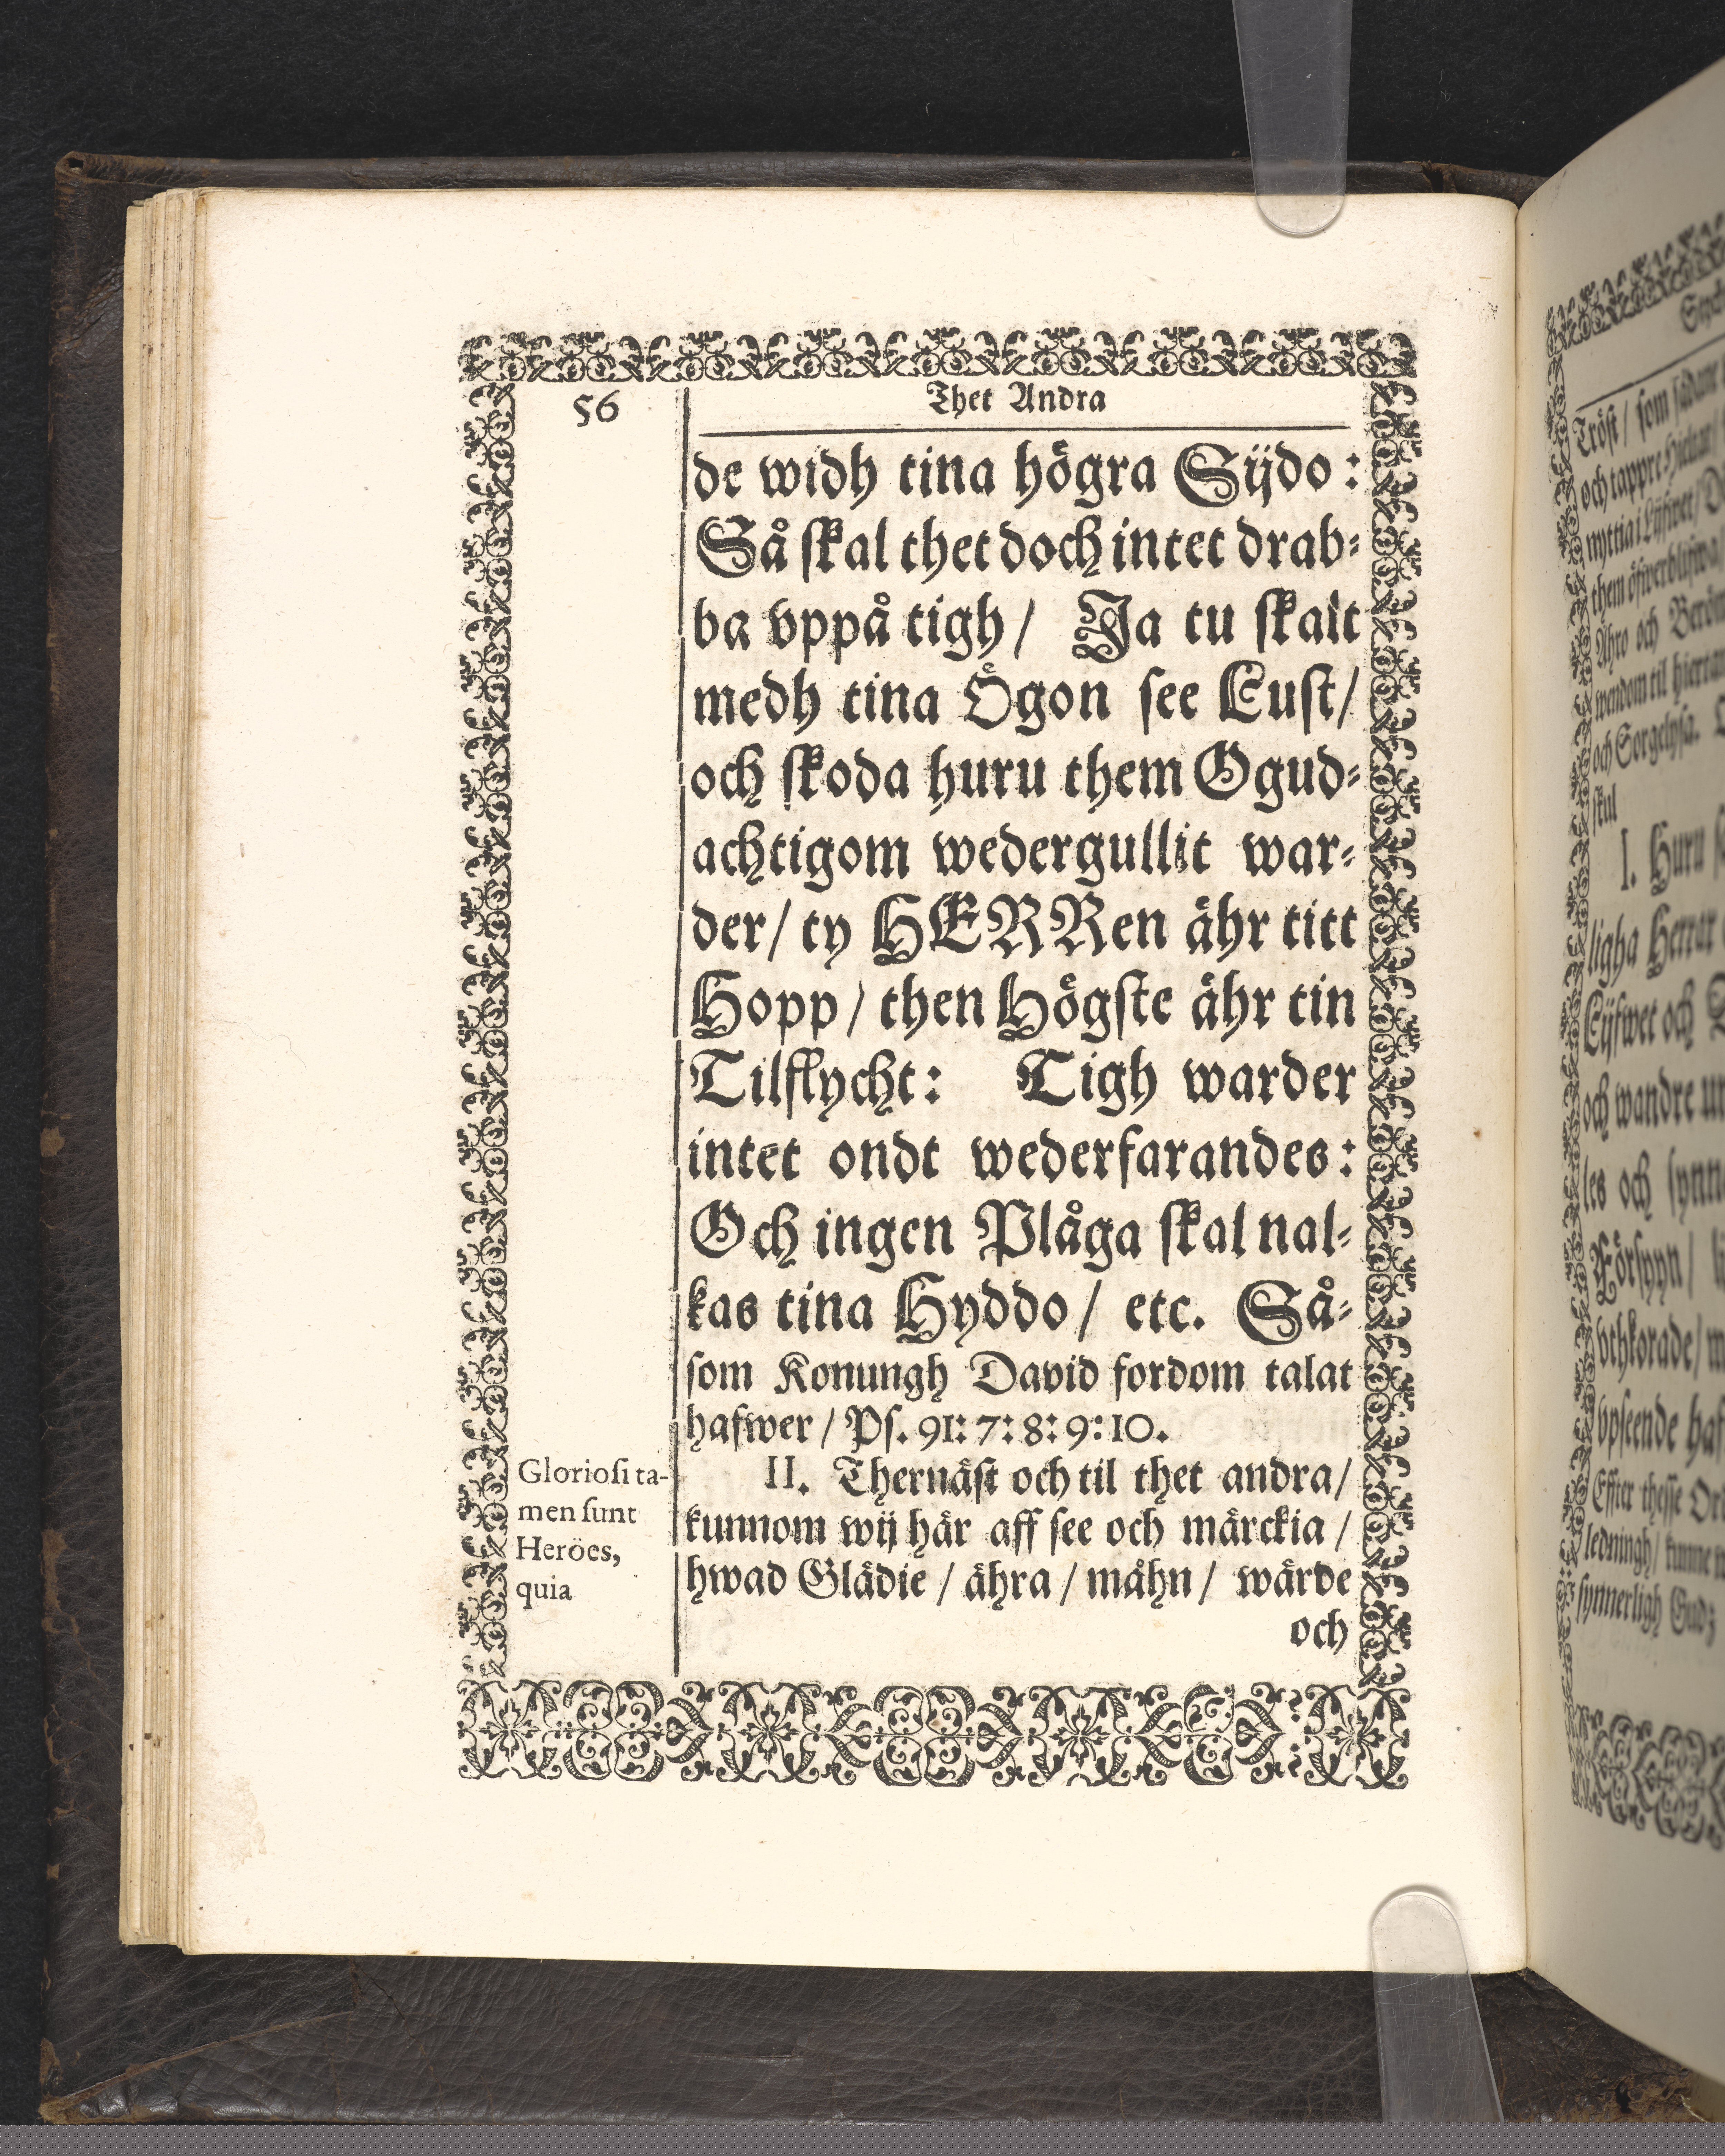 56
Thet Andra
de widh tina högra Sijdo:
Så skal thet doch intet drab-
ba vppå tigh/ Ja tu skalt
medh tina Ögon see Lust/
och skoda huru them Ogud-
achtigom wedergullit war-
der/ ty HERRen ähr titt
Hopp/ then Högste ähr tin
Tilflycht: Tigh warder
intet ondt wederfarandes:
Och ingen Plåga skal nal-
kas tina Hyddo/ etc. Så-
som Konungh David fordom talat
hafwer/ Ps. 91: 7: 8: 9: 10.
II. Thernäst och til thet andra/
kunnom wij här aff see och märckia/
hwad Glädie/ ähra/ måhn/ wärde
och
Gloriosi ta-
men sunt
Heröes,
quia
Tröst/ som sådane
och tappre Hieltar/
nyttia i Lijfwet/
them öfwerblifwa
Ähro och Beröm
wendom til hierta
och Sorgelysa.
skul
I. Huru
ligha Herrar
Lijfwet och
och wandre
les och synn
Försyyn/
vthkorade/
vpseende haf
Effter thesse Ord
ledningh/ kunne
synnerligh Gud;